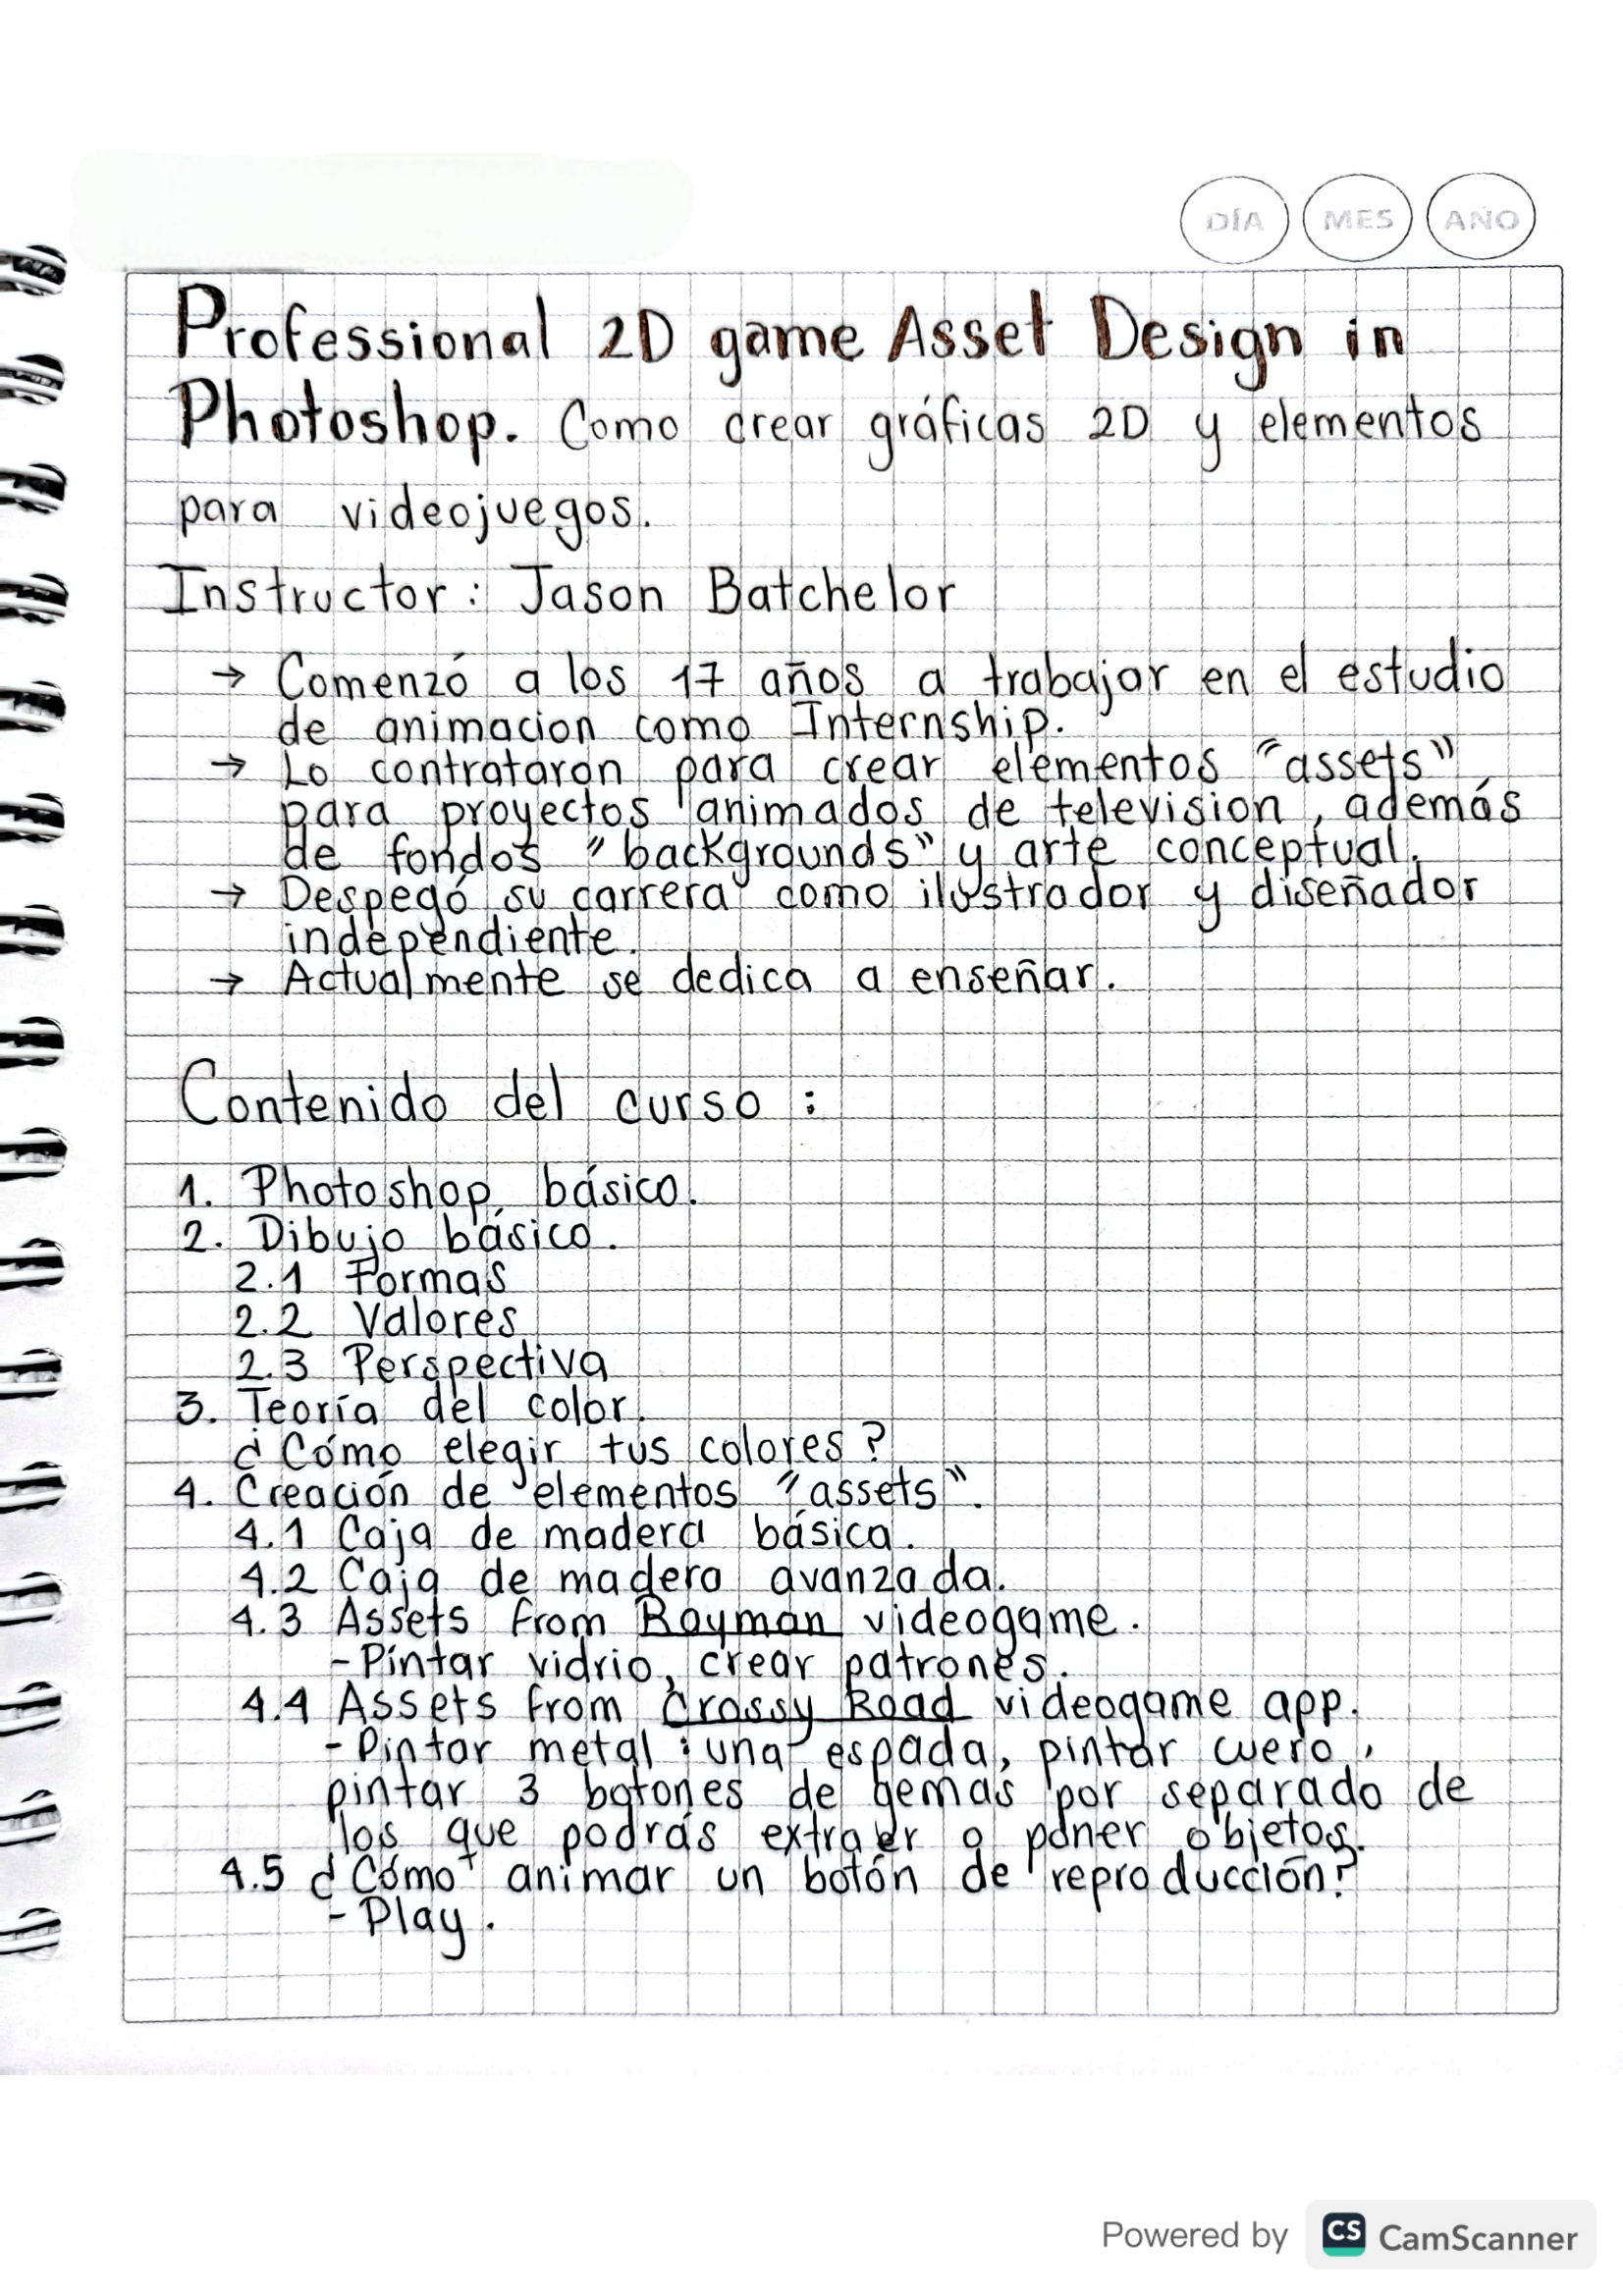 DÍA MES AÑO
Professional 2D game Asset Design in
Photoshop. Como crear gráficas 2D y elementos
para videojuegos.
Instructor: Jason Batchelor
→ Comenzó a los 17 años a trabajar en el estudio
de animacion como Internship.
→ Lo contrataron para crear elementos "assets"
para proyectos animados de television, además
de fondos "backgrounds" y arte conceptual.
→ Despegó su carrera como ilustrador y diseñador
independiente.
→ Actualmente se dedica a enseñar.
Contenido del curso:
1. Photoshop básico.
2. Dibujo básico.
2.1 Formas
2.2 Valores
2.3 Perspectiva
3. Teoría del color.
¿Cómo elegir tus colores?
4. Creación de elementos "assets".
4.1 Caja de madera básica.
4.2 Caja de madera avanzada.
4.3 Assets from Rayman videogame.
- Pintar vidrio, crear patrones.
4.4 Assets from Crossy Road videogame app.
- Pintar metal: una espada, pintar cuero,
pintar 3 botones de gemas por separado de
los que podrás extraer o poner objetos.
4.5 ¿Cómo animar un botón de reproducción?
- Play.
Powered by CS CamScanner